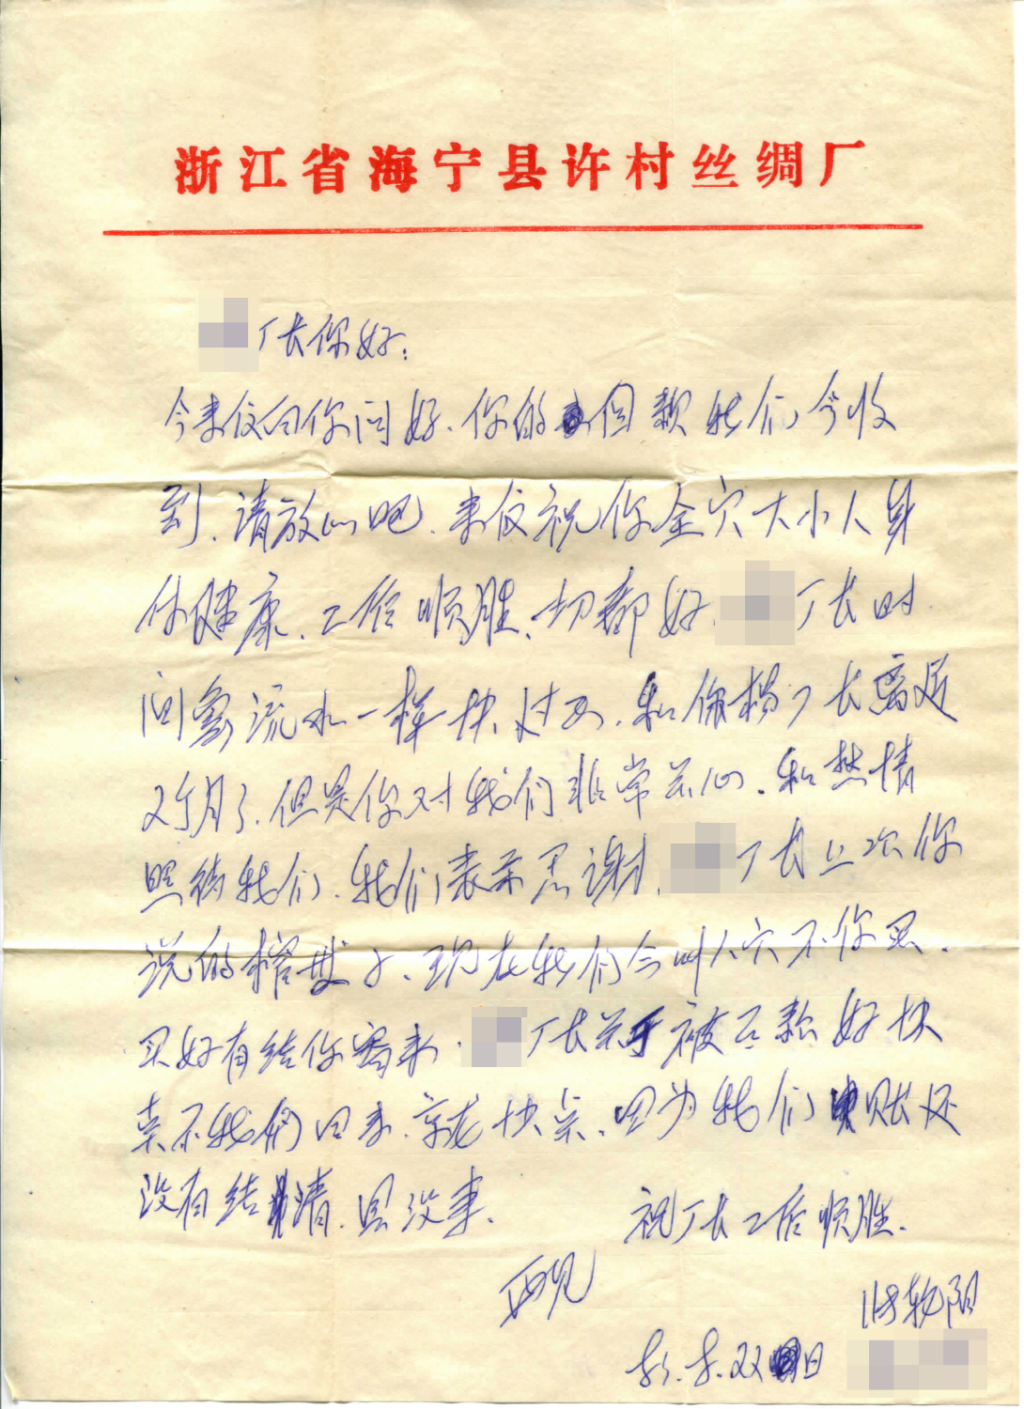 浙江省海宁县许村丝绸厂
厂长你好:
今来仪向你问好.你的回款我们今收
到.请放心吧.来仪祝你全穴大小人身
体健康.工作顺胜.切都好.厂长时
间象流水一样快过去.和你杨厂长离近
2个月了.但是你对我们非常关心.和热情
照待我们.我们表示思谢.厂长上次你
说的.现在我们今叫人穴不你买.
买好有给你寄来.厂长关于被石款好快
来不我们回来.就老快点.因为我们账还
没有结清.另没事.
祝厂长工作顺胜.
再见